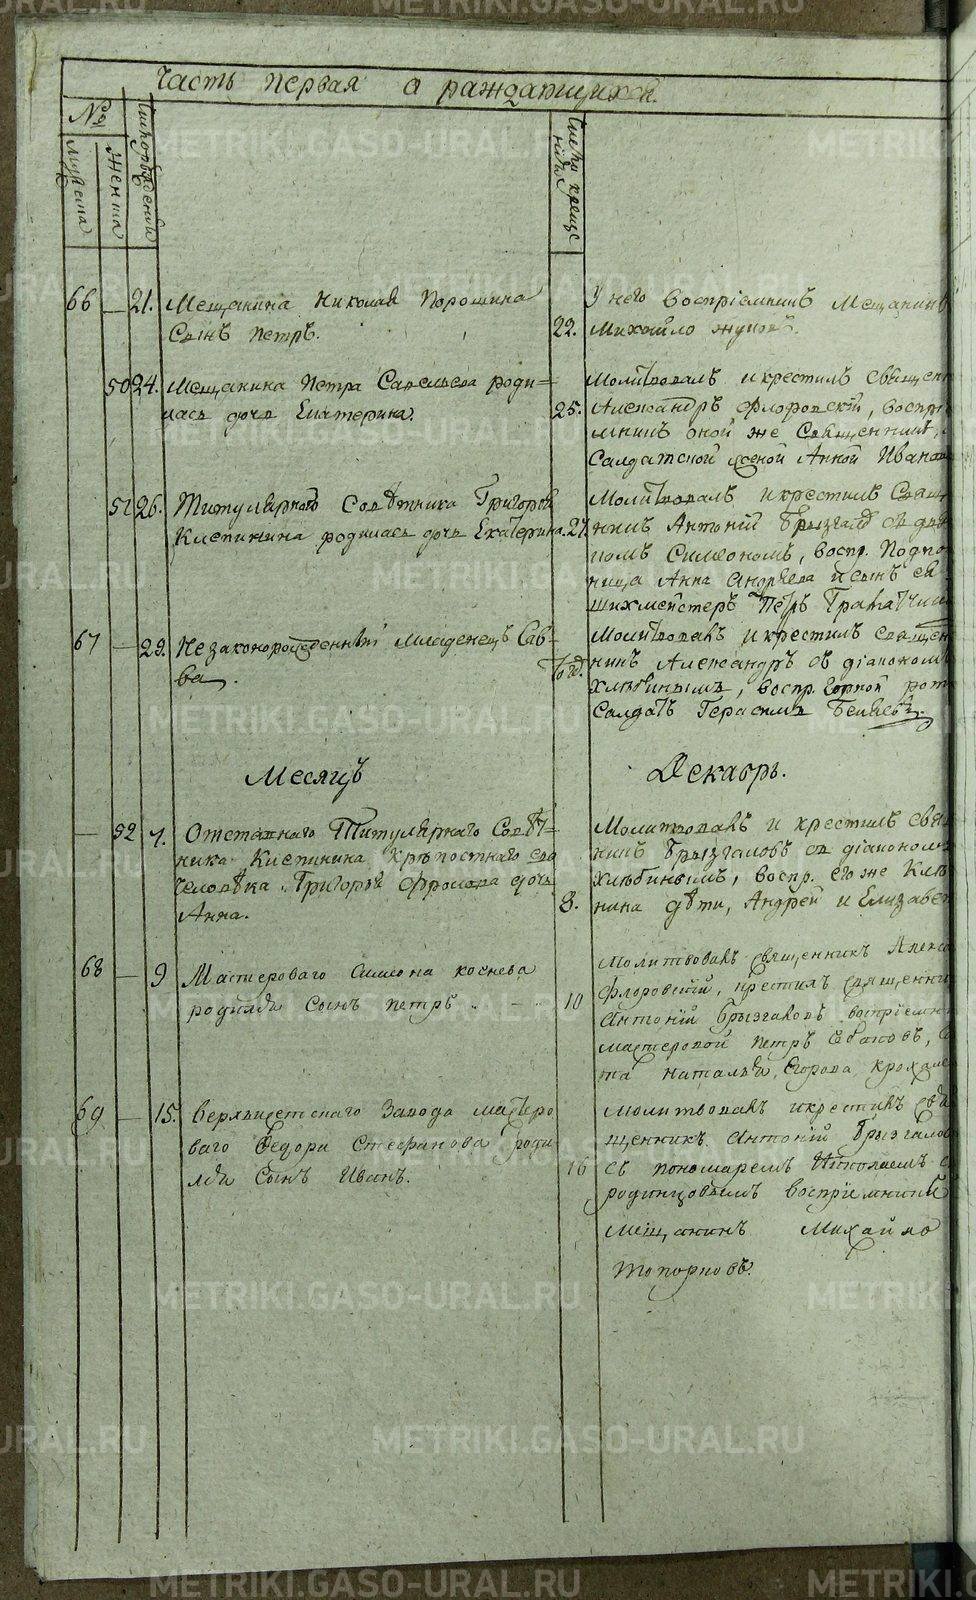 Часть первая о раждающихся.
№
мужеска
женска
Число рождения
Число крещения
66 — 21. Мещанина Николая Порошина
Сынъ Петръ.
22.
У него воспріемникъ Мещанинъ
Михайло
50 24. Мещанина Петра Савельева роди=
лась дочь Екатерина.
25.
Молитвовалъ и крестилъ священ
Александръ Флоровскій, воспр
емникъ оной же Священникъ,
Салдатской женой Анной Иванов
51 26. Титулярнаго Советника Григорья
Клепинина родилась дочь Екатерина.
27.
Молитвовалъ и крестилъ Свящ
никъ Антоній Брызгалов съ дья
Симеономъ, воспр. Подпо
Анна Андреева и сынъ ея
шихмейстеръ Петръ
67 — 29. Незаконорожденный младенецъ Сав=
ва.
Молитвовалъ и крестилъ священ
никъ Александръ съ діакономъ
Хлѣбинымъ, воспр. горной рот
Салдатъ Герасимъ Беляевъ.
Месяцъ
Декабрь.
— 52 7. Отставнаго Титулярнаго Совѣт=
ника Клепинина Крѣпостнаго его
человѣка Григорья Фролова дочь
Анна.
8.
Молитвовалъ и крестилъ свящ
никъ Брызгаловъ съ діакономъ
Хлѣбинымъ, воспр. его же Клеп
нина дѣти, Андрей и Елизавет
68 — 9 Мастероваго Симеона Коснева
родился Сынъ Петръ.
10
Молитвовалъ священникъ Алекса
Флоровскій, крестилъ священни
Антоній Брызгаловъ воспріемни
мастеровой Петръ
Наталья Егорова
69 — 15. Верхъисетскаго Завода мастеро
ваго Федора Стефанова роди
лся Сынъ Иванъ.
16
Молитвовалъ и крестилъ свя
щенникъ Антоній Брызгалов
съ пономаремъ Николаемъ
родинцовымъ воспріемники
мещанинъ Михайло
Топорковъ.
METRIKI.GASO-URAL.RU